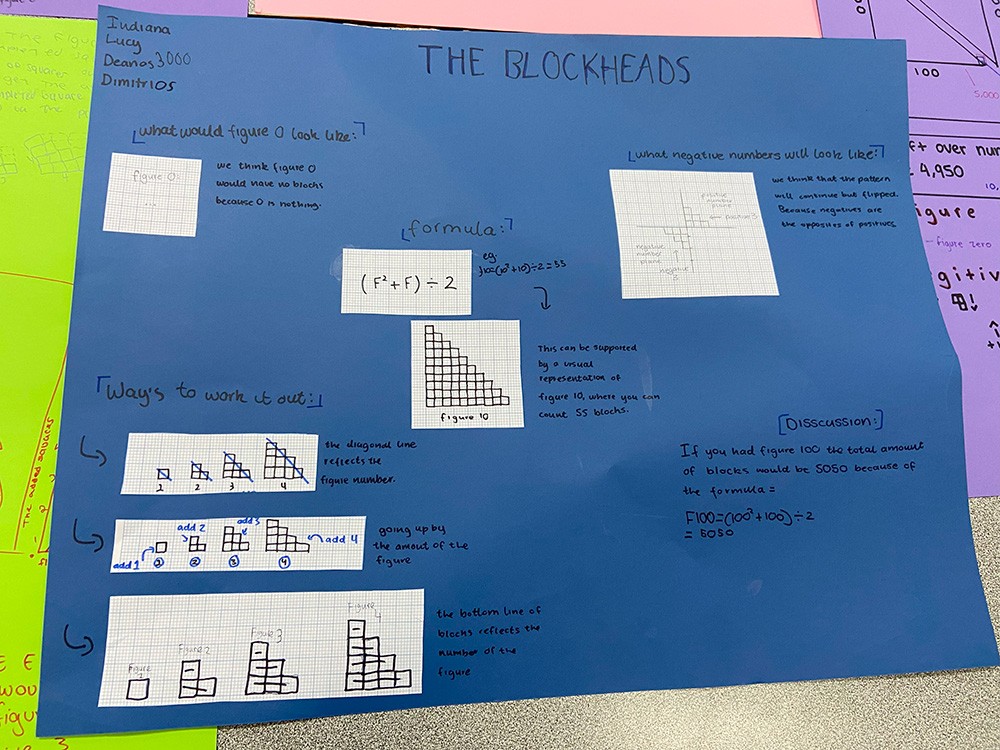 Indiana
Lucy
Deanos3000
Dimitrios
THE BLOCKHEADS
[what would figure 0 look like:]
figure 0
...
we think figure 0
would have no blocks
because 0 is nothing.
[what negative numbers will look like:]
positive
number
plane
positive
negative
number
plane
negative
we think that the pattern
will continue but flipped.
Because negatives are
the opposites of positives
[formula:]
(F²+F) ÷ 2
eg.
f10=(10²+10)÷2=55
figure 10
This can be supported
by a visual
representation of
figure 10, where you can
count 55 blocks.
[Way's to work it out:]
1 2 3 4
the diagonal line
reflects the
figure number.
add 1
add 2
add 3
add 4
1 2 3 4
going up by
the amount of the
figure
Figure
Figure 2
Figure 3
Figure
4
the bottom line of
blocks reflects the
number of the
figure
[Disscussion:]
If you had figure 100 the total amount
of blocks would be 5050 because of
the formula =
F100=(100²+100)÷2
= 5050
100
5,000
ft over num
4,950
10,
igure
- figure zero
gitiv
The added squares
E E
wou
figu
3